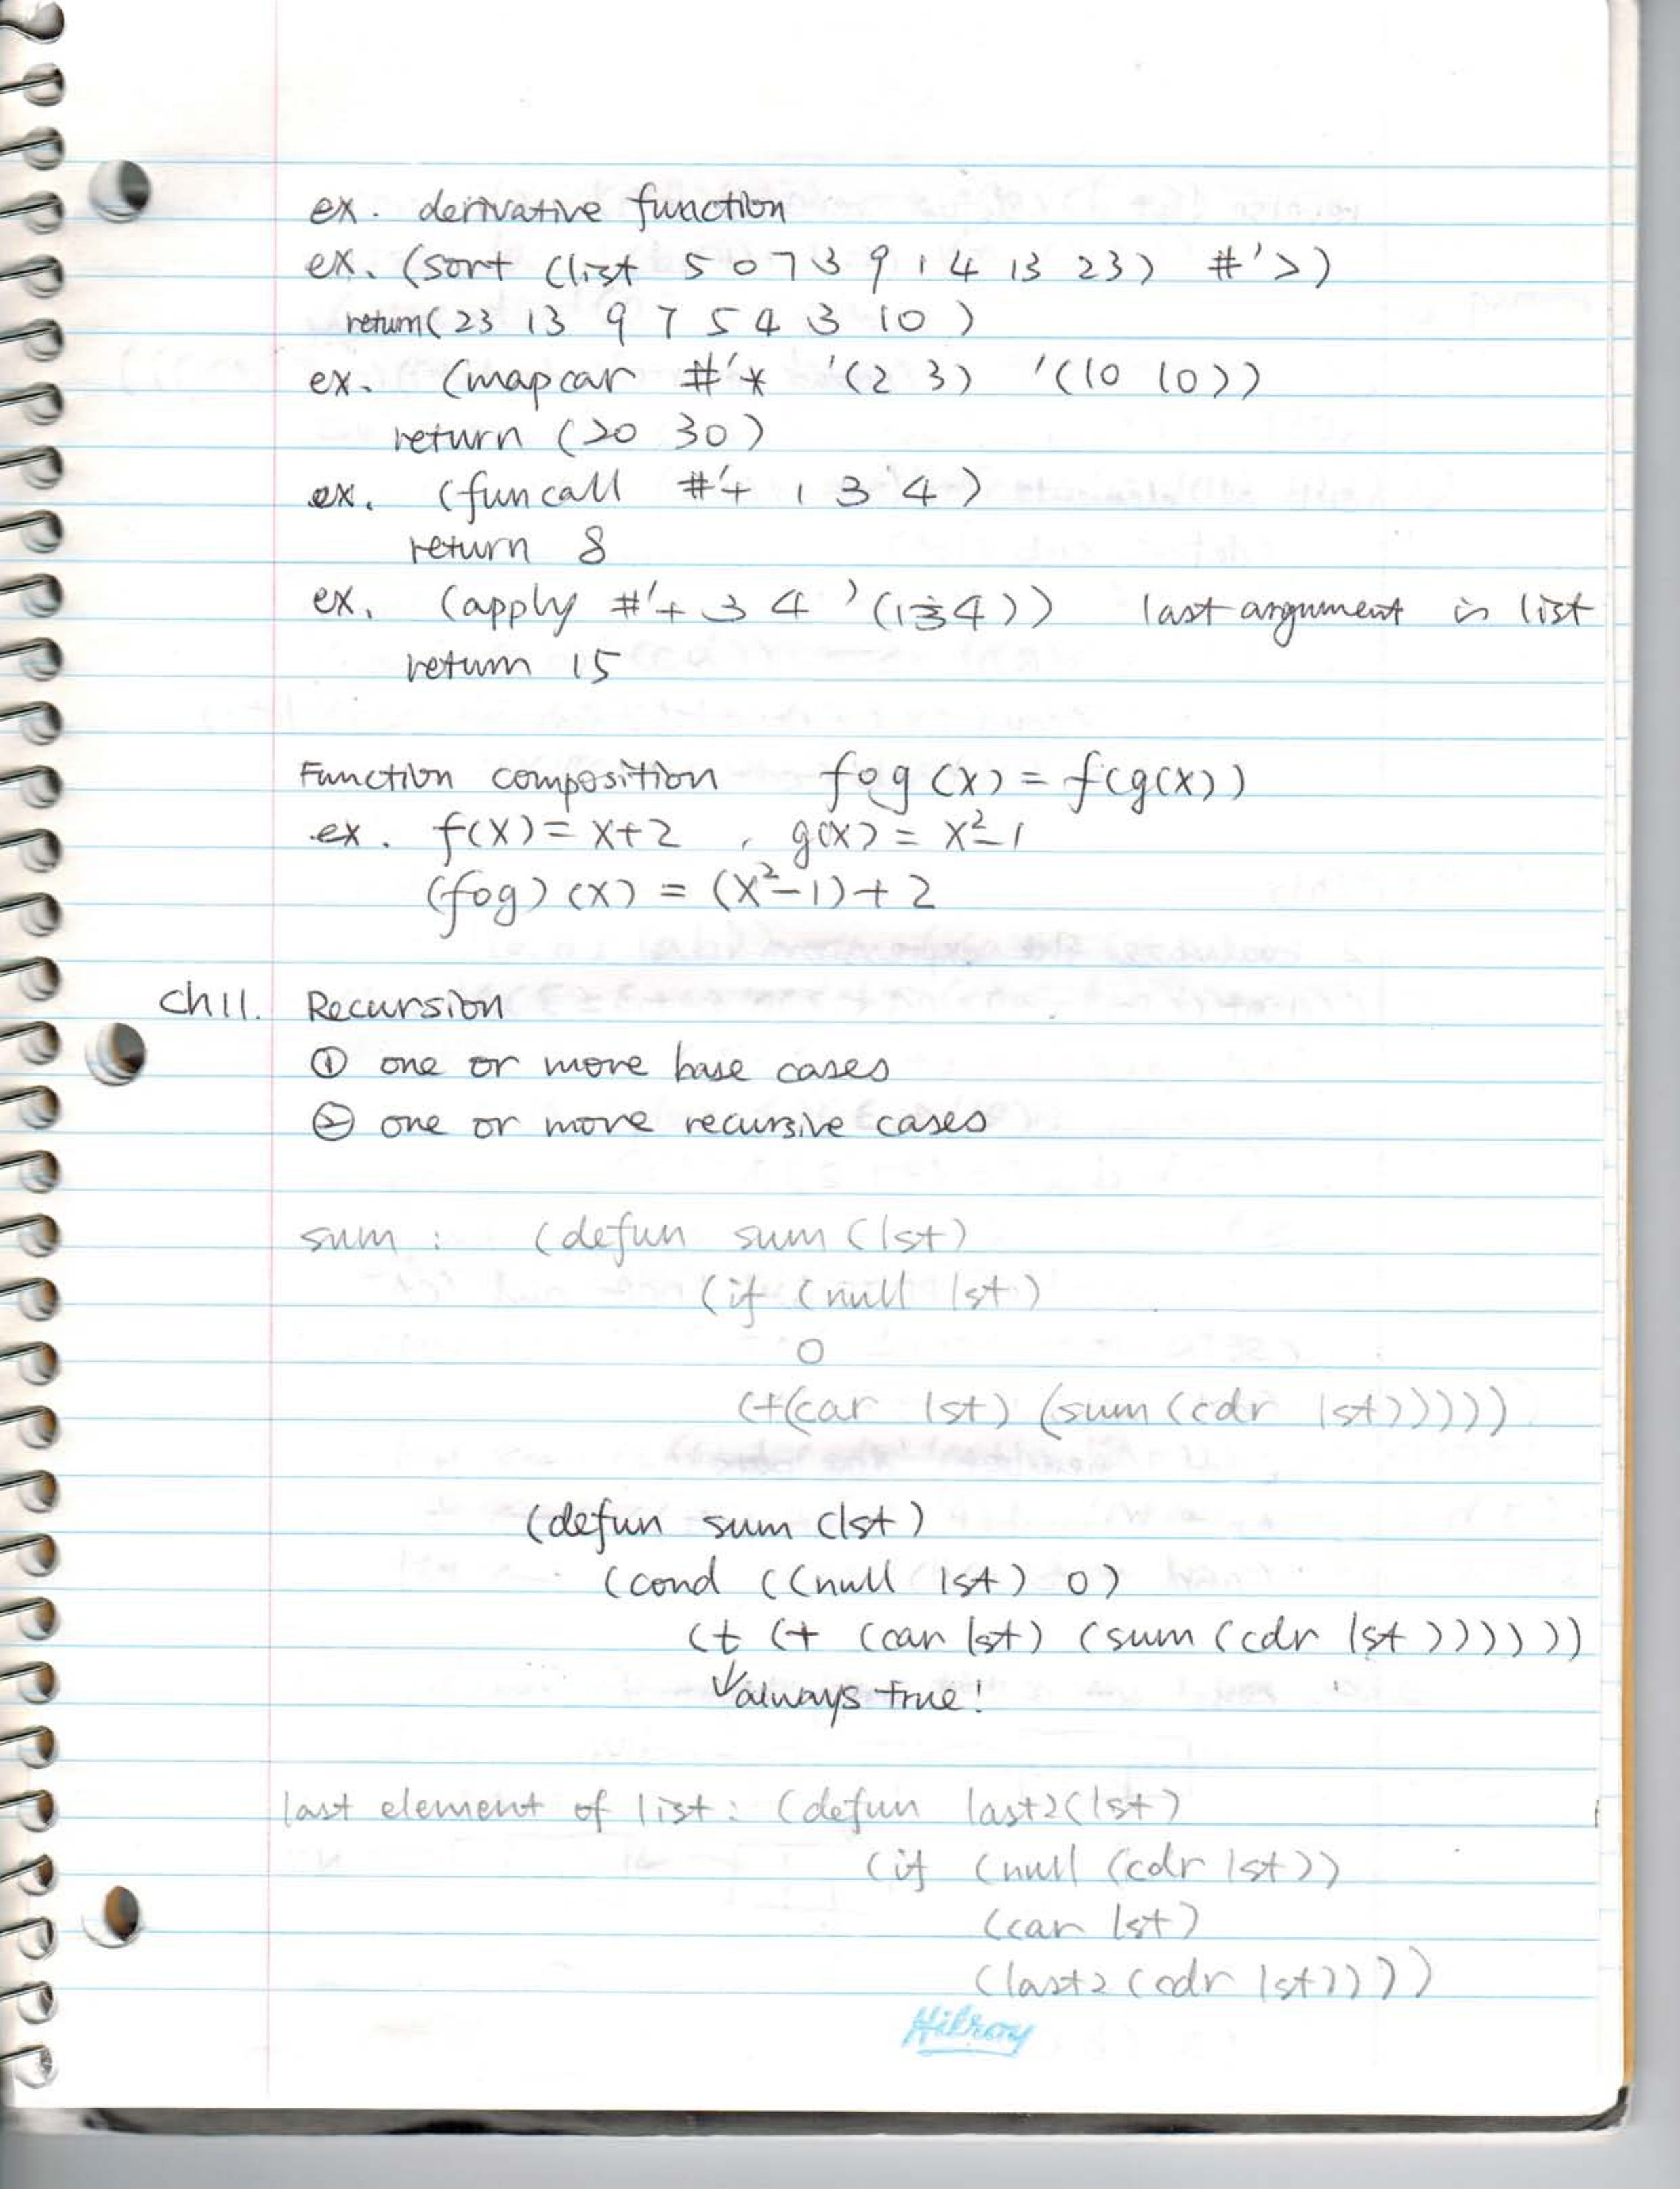 ex. derivative function
ex. (sort (list 5 0 7 3 9 1 4 13 23) #'>)
return (23 13 9 7 5 4 3 1 0)
ex. (mapcar #'* '(2 3) '(10 10))
return (20 30)
ex. (funcall #'+ 1 3 4)
return 8
ex. (apply #'+ 3 4 '(1 3 4)) last argument is list
return 15
Function composition fog (x) = f(g(x))
ex. f(x) = x+2 , g(x) = x²-1
(fog) (x) = (x²-1)+2
Ch11. Recursion
① one or more base cases
② one or more recursive cases
sum : (defun sum (lst)
(if (null lst)
0
(+(car lst) (sum (cdr lst)))))
(defun sum (lst)
(cond ((null lst) 0)
(t (+ (car lst) (sum (cdr lst))))))
↓always true!
last element of list: (defun last2(lst)
(if (null (cdr lst))
(car lst)
(last2 (cdr lst))))
Hilroy